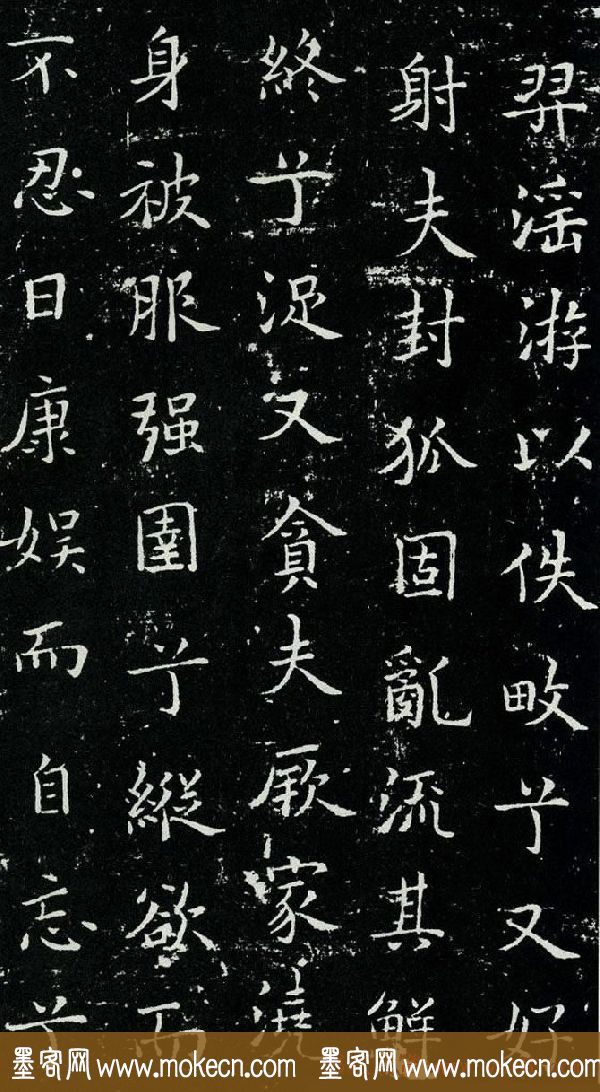 羿滛游以佚畋兮又好
射夫封狐固亂流其鮮
終兮浞又貪夫厥家澆
身被服强圉兮縱欲而
不忍日康娱而自忘兮
墨客网 www.mokecn.com 墨客网 www.mokecn.com